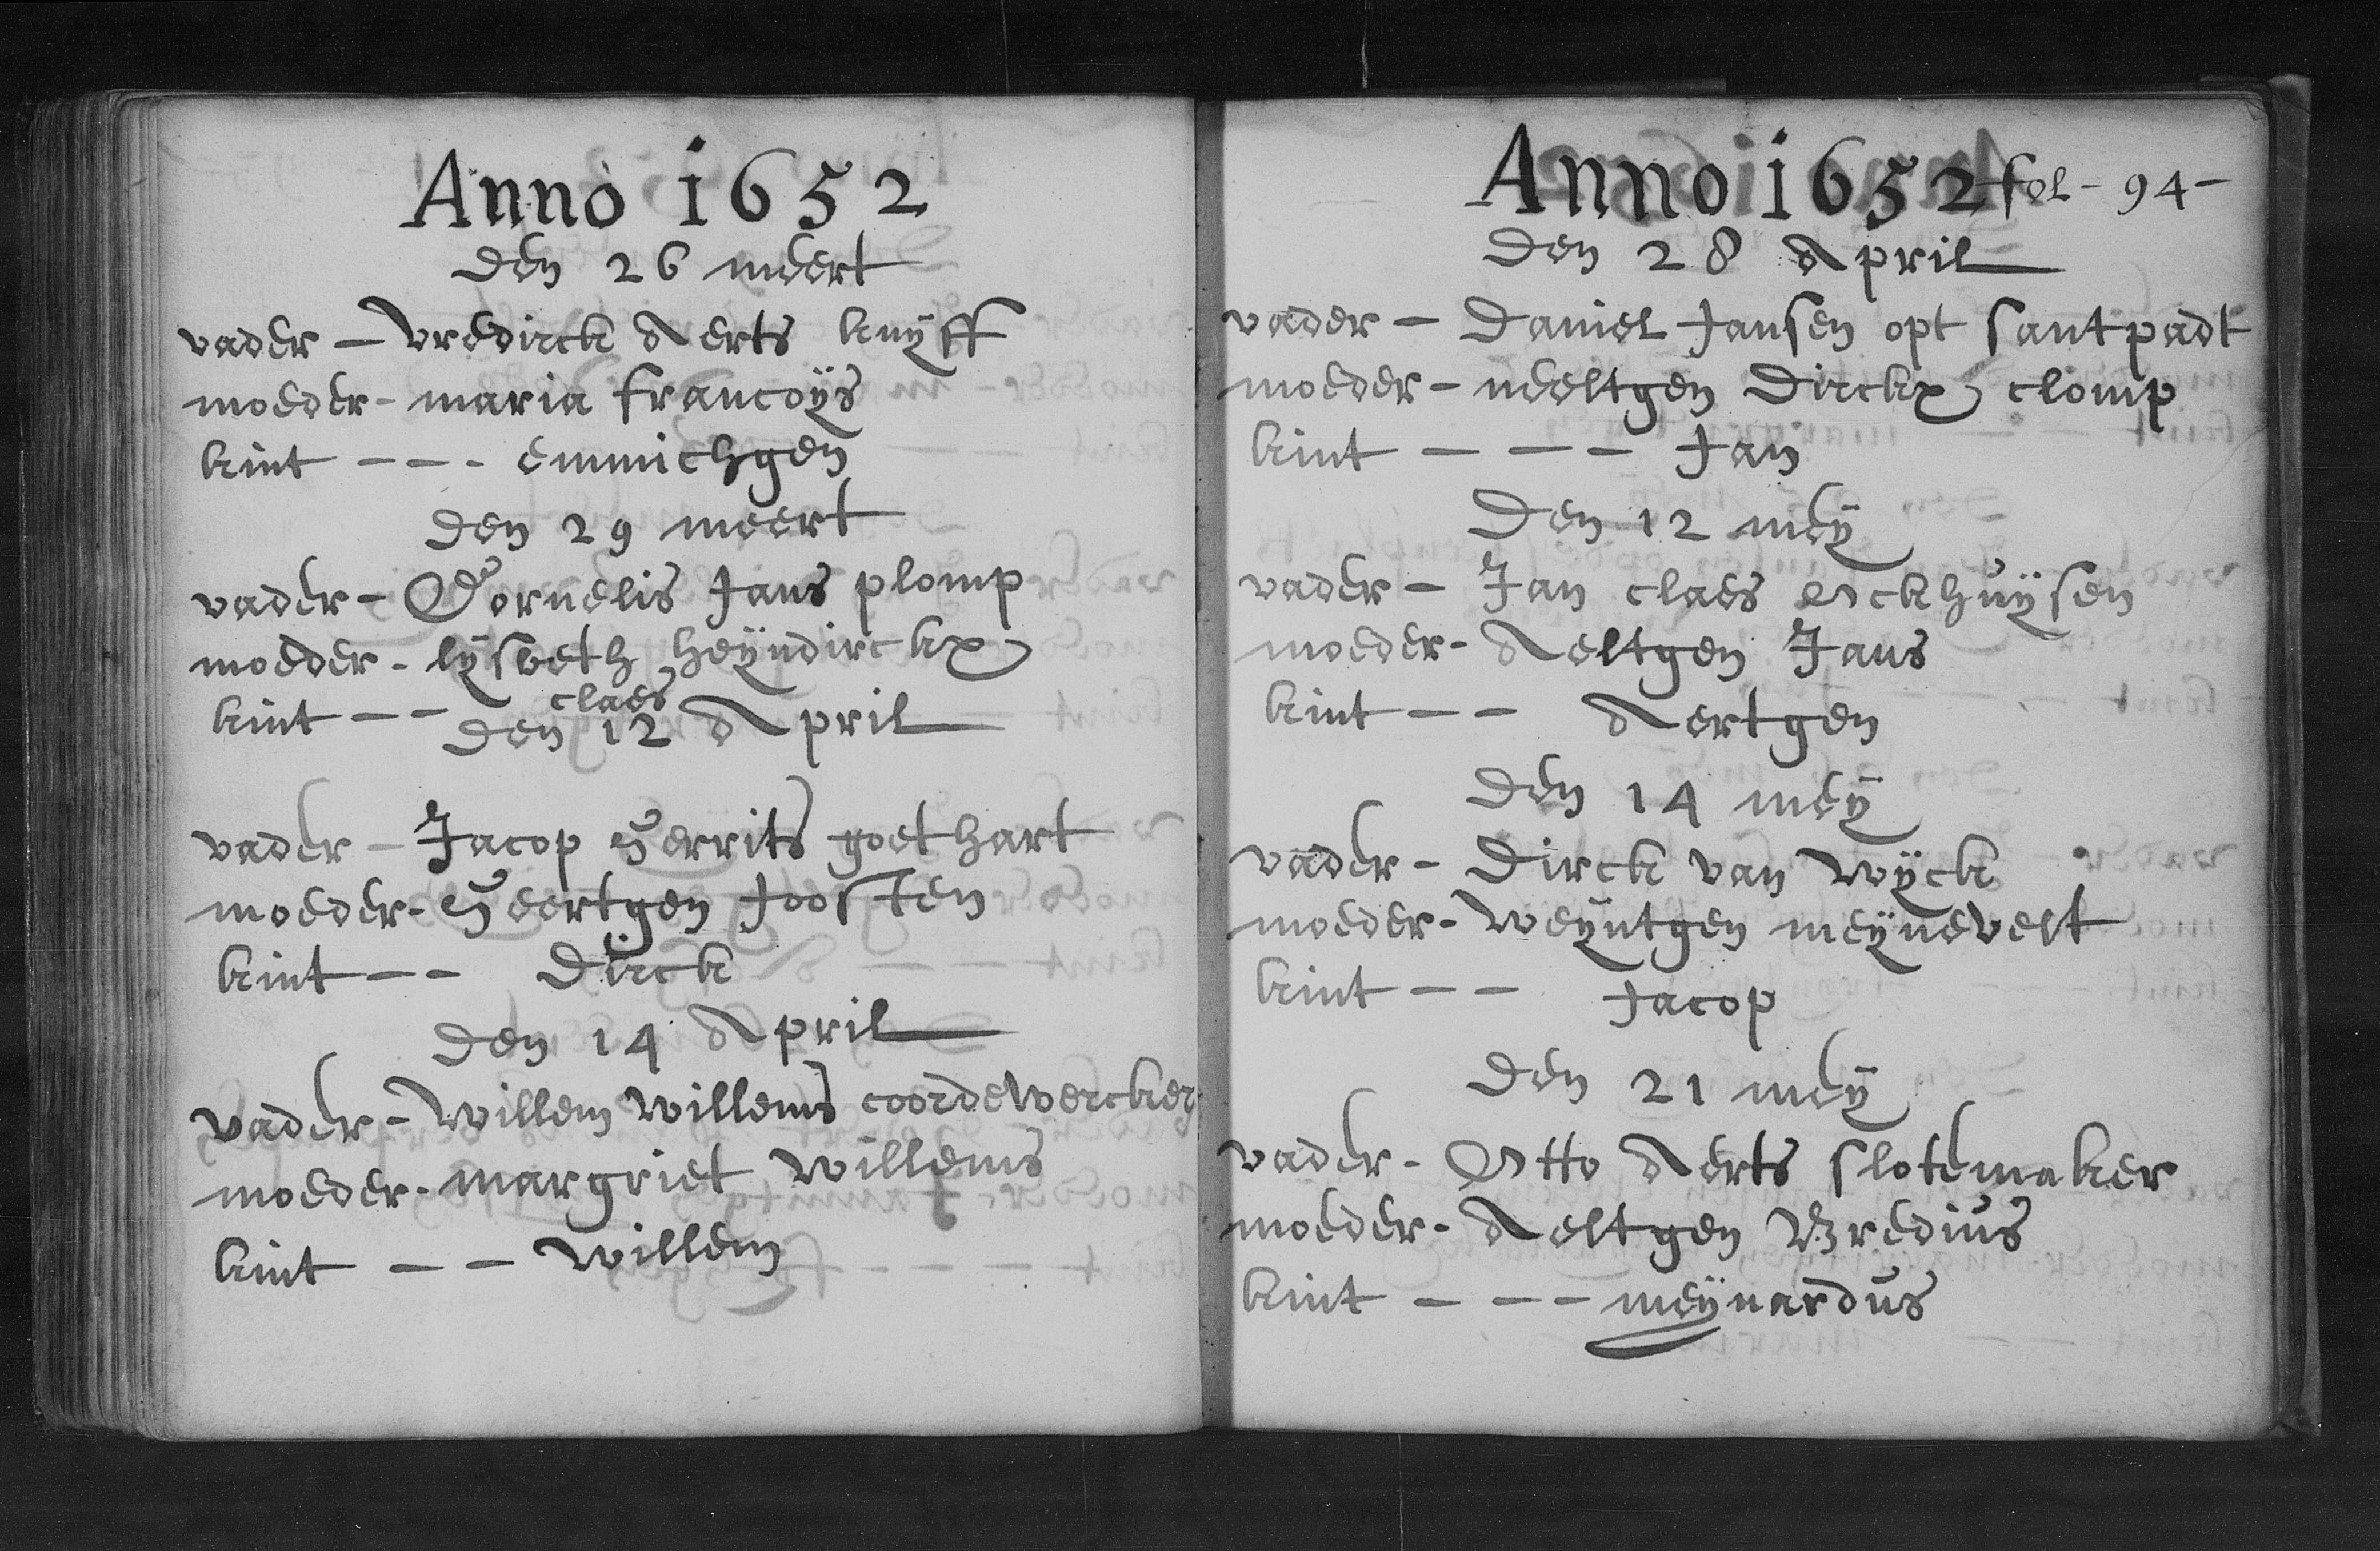 Anno 1652
den 26 meert
vader - vredirck Aerts knÿff
moeder - maria francoÿs
kint - - - emmichgen
den 29 meert
vader - Cornelis Jans plomp
moeder - lÿsbeth heÿndirckx
kint - - claes
den 12 April
vader - Jacop Gerrits goethart
moeder - Geertgen Joosten
kint - - Dirck
den 14 April
vader - willem willems coordewercker
moeder - margriet willems
kint - - willem
Anno 1652 fol - 94 -
den 28 April
vader - Daniel Jansen opt santpadt
moeder - neeltgen Dirckx clomp
kint - - - Jan
Den 12 meÿ
vader - Jan claes Ockhuÿsen
moeder - Aeltgen Jans
kint - - Aertgen
den 14 meÿ
vader - Dirck van wÿck
moeder - weÿntgen meÿnevelt
kint - - Jacop
den 21 meÿ
vader - Otto Aerts slotemaker
moeder - Aeltgen Bredius
kint - - - meÿnardus